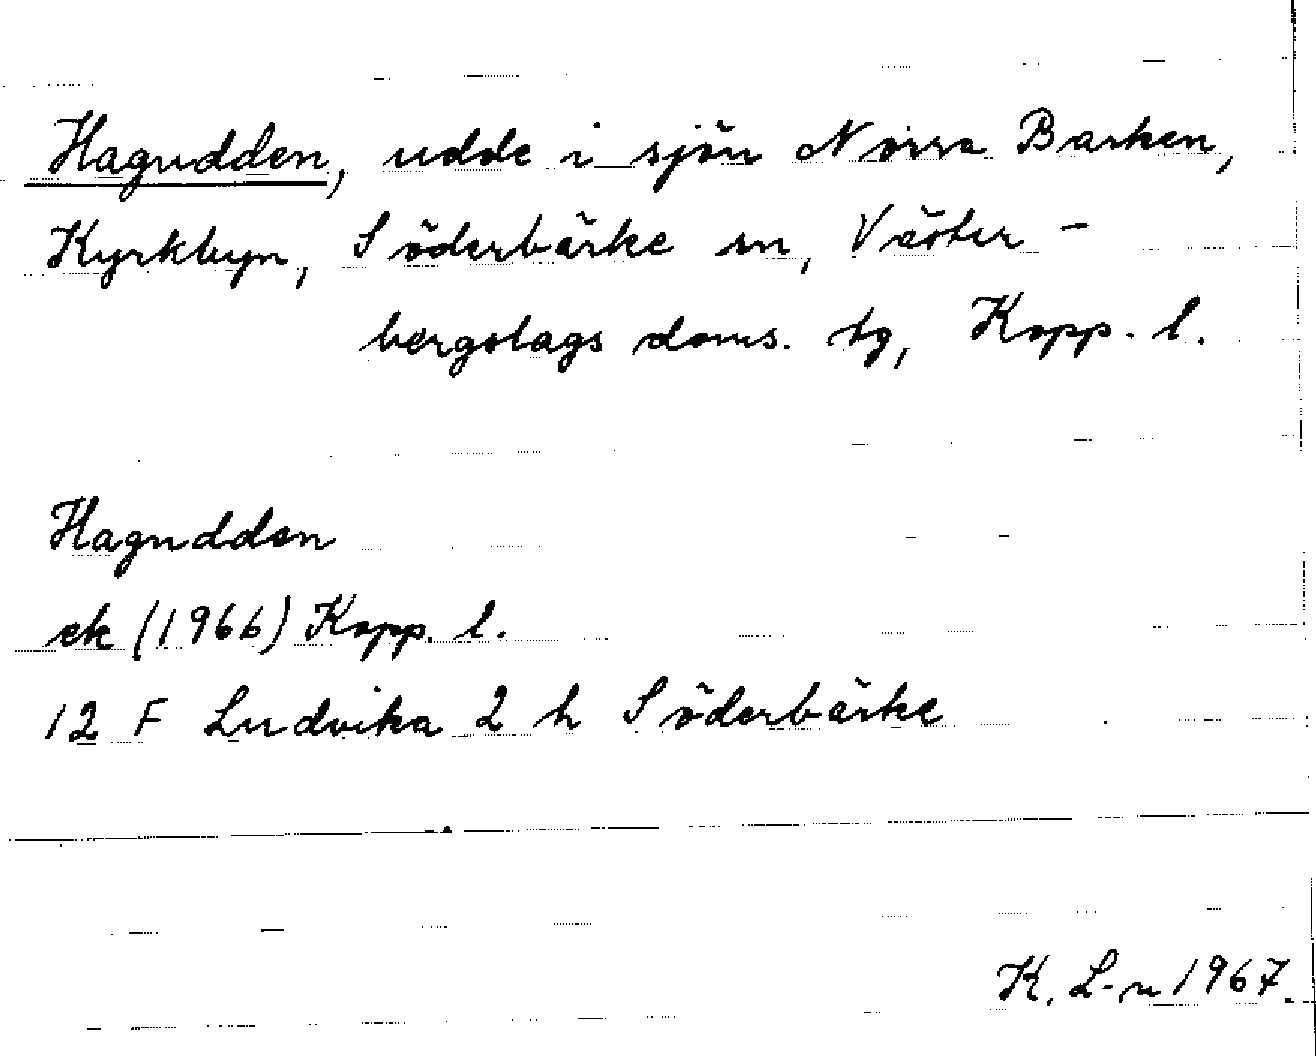 Hagudden, udde i sjön Norra Barken,
Kyrkbyn, Söderbärke sn, Väster-
bergslags doms. tg, Kopp. l.
Hagudden
ek (1966) Kopp. l.
12 F Ludvika 2 h Söderbärke
K. L-n 1967.